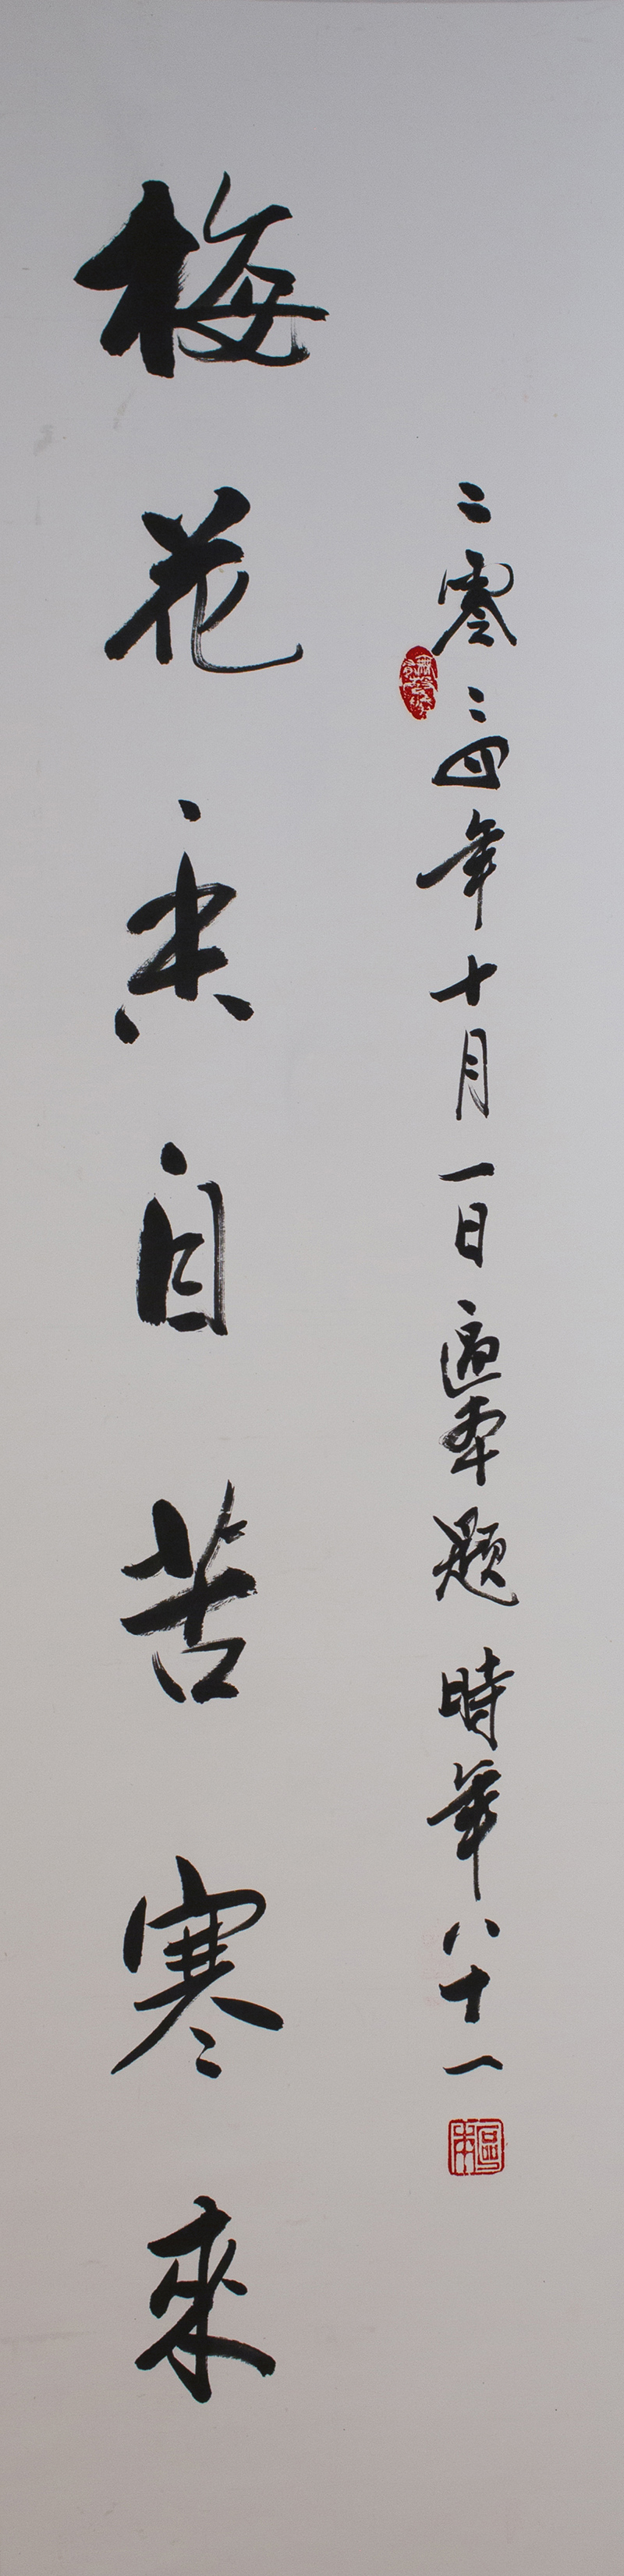 梅花香自苦寒來
二零二四年十月一日區本題 時年八十一
區本